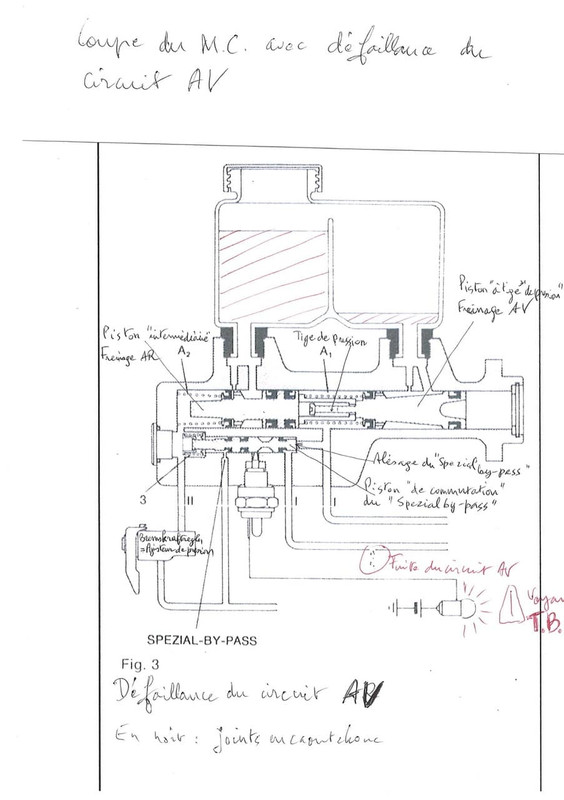 Coupe du M.C. avec défaillance du
circuit AV
Piston "à tige de pression"
Freinage AV
Piston "intermédiaire"
Freinage AR
A2
Tige de pression
A1
Alésage du "Spezial
by-pass"
Piston "de commutation"
du "Spezial by-pass"
3
II
I
I
Bremskraftregler
=Ajusteur de pression
Fuite du circuit AV
Voyant
T.B.
SPEZIAL-BY-PASS
Fig. 3
Défaillance du circuit AV
En noir : joints en caoutchouc